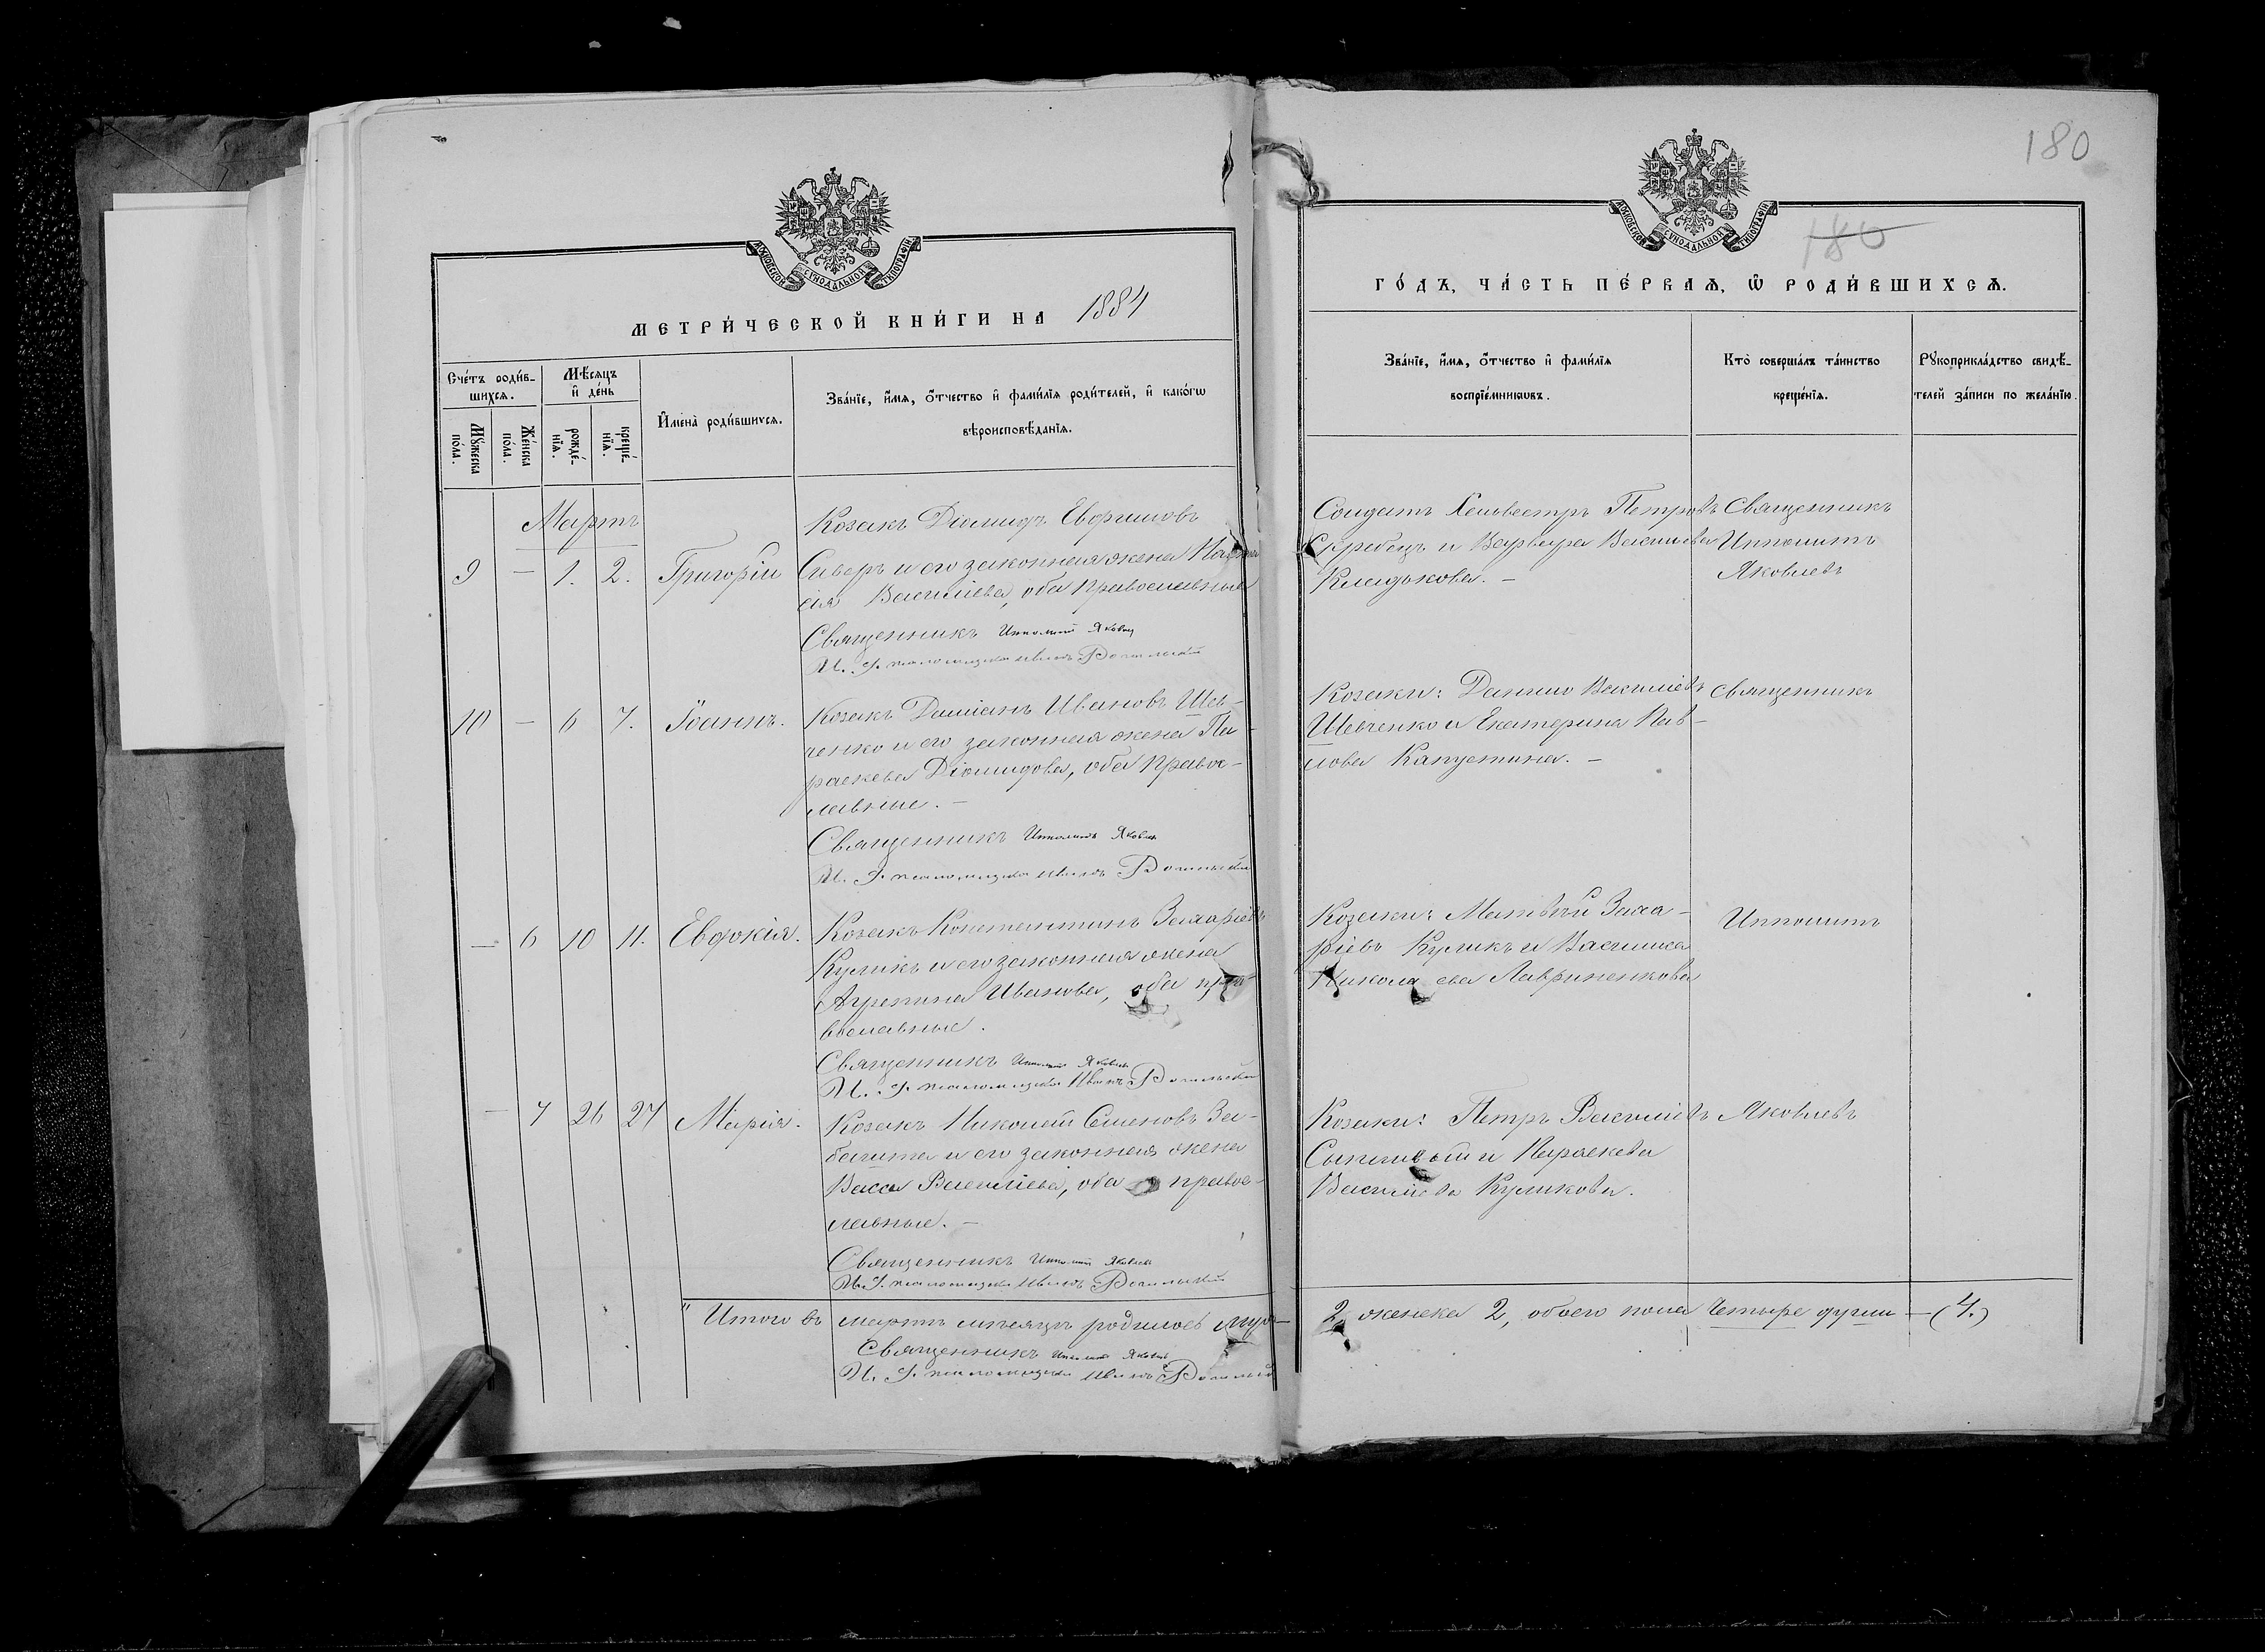 180
180
МОСКОВСКОЙ СѴНОДАЛЬНОЙ ТИПОГРАФІИ
МЕТРИ́ЧЕСКОЙ КНИ́ГИ НА 1884
Сче́тъ роди́в-
шихсѧ.
Мꙋ́жеска
по́ла.
Же́нска
по́ла.
Мѣ́сѧцъ
и҆ де́нь
рожде́-
нїѧ.
креще́-
нїѧ.
И҆мена̀ роди́вшихсѧ.
Зва́нїе, и҆́мѧ, ѻ҆́тчество и҆ фами́лїѧ роди́телей, и҆ како́гѡ
вѣроисповѣ́данїѧ.
Мартъ
9 — 1. 2. Григорій
Козакъ Діомидъ Евфимовъ
Сиверъ и его законная жена
сія Василіева, оба православные
Священникъ Ипполитъ Яковлевъ
И. д. псаломщика Иванъ
10 — 6 7. Іоаннъ.
Козакъ Даміанъ Ивановъ Шев-
ченко и его законная жена Па-
раскева Діомидова, оба правос-
лавные. —
Священникъ Ипполитъ Яковлевъ
И. д. псаломщика Иванъ
— 6 10 11. Евдокія.
Козакъ Константинъ Захаріевъ
Куликъ и его законная жена
Агрепина Иванова, оба пра-
вославные.
Священникъ Ипполитъ Яковлевъ
И. д. псаломщика Иванъ
— 7 26 27 Марія.
Козакъ Николай Семеновъ За-
башта и его законная жена
Васса Василіева, оба правос-
лавные. —
Священникъ Ипполитъ Яковлевъ
И. д. псаломщика Иванъ
Итого въ мартѣ мѣсяцѣ родилось муж-
Священникъ Ипполитъ Яковлевъ
И. д. псаломщика Иванъ
МОСКОВСКОЙ СѴНОДАЛЬНОЙ ТИПОГРАФІИ
ГО́ДЪ, ЧА́СТЬ ПЕ́РВАѦ, Ѡ҆ РОДИ́ВШИХСѦ.
Зва́нїе, и҆́мѧ, ѻ҆́тчество и҆ фами́лїѧ
воспрїе́мникѡвъ.
Кто̀ соверша́лъ та́инство
креще́нїѧ.
Рꙋкоприкла́дство свидѣ́-
телей за́писи по жела́нїю.
Солдатъ Сельвестръ Петровъ
Скребецъ и Варвара Василіева
Кладькова. —
Священникъ
Ипполитъ
Яковлевъ
Козаки: Данило Василіевъ
Шевченко и Екатерина Пав-
лова Капустина. —
Священникъ
Козаки: Матвѣй Заха-
ріевъ Куликъ и Василиса
Николаева Лавриненкова
Ипполитъ
Козаки: Петръ Василіевъ
и Параскева
Василіева Куликова.
Яковлевъ
2, женска 2, обоего пола четыре души — (4.)